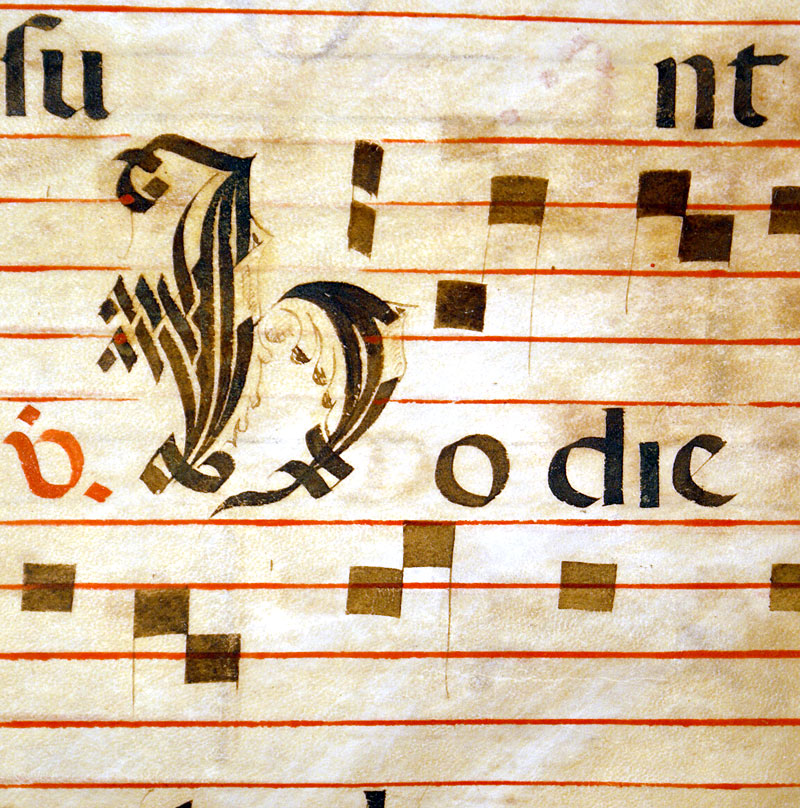 su nt
V. Hodie